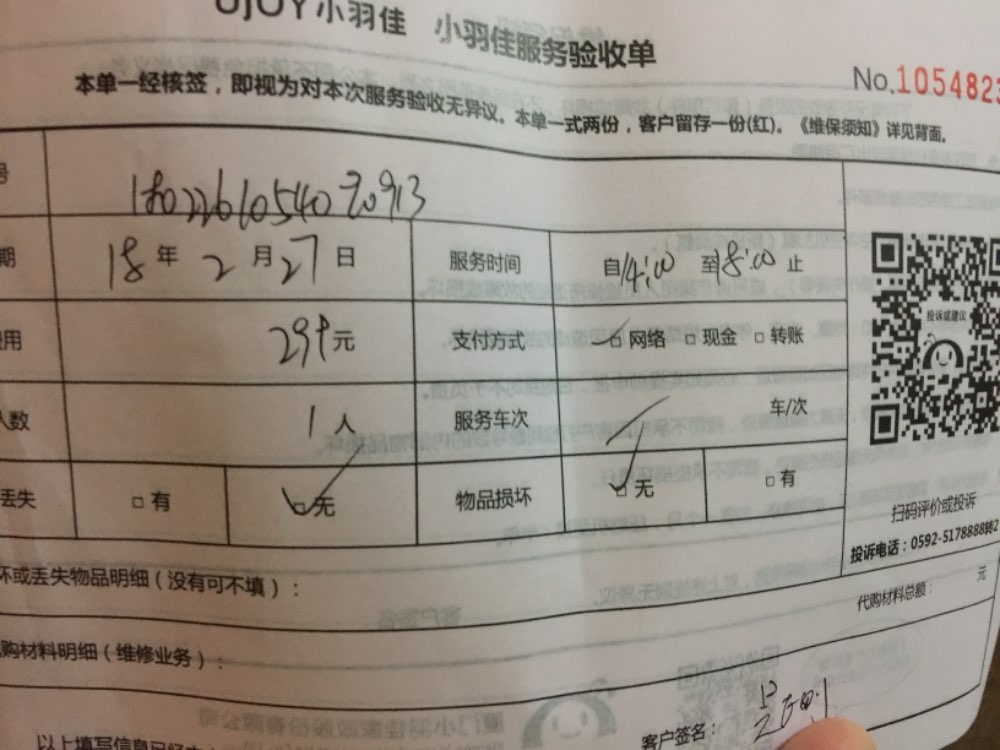 UJOY小羽佳 小羽佳服务验收单
No.1054823
本单一经核签，即视为对本次服务验收无异议。本单一式两份，客户留存一份(红)。《维保须知》详见背面。
号
期 18年 2月27日 服务时间 自14:00 至18:00止
费用 299元 支付方式 □网络 □现金 □转账
人数 1人 服务车次 车/次
丢失 □有 □无 物品损坏 □无 □有
投诉或建议
扫码评价或投诉
投诉电话：0592-5178888
坏或丢失物品明细（没有可不填）：
代购材料总额： 元
购材料明细（维修业务）：
客户签名：
以上填写信息已经